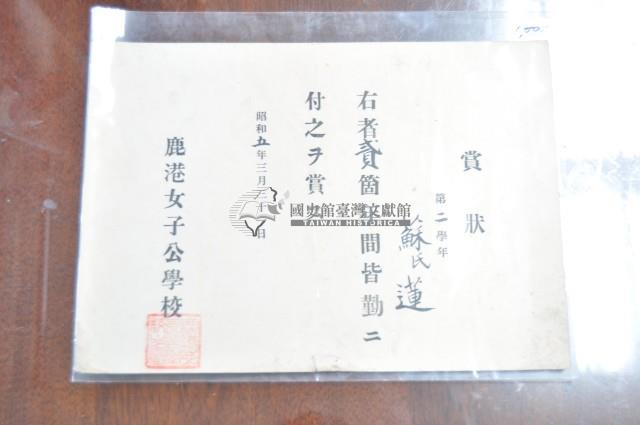 賞狀
第二學年
蘇氏蓮
右者貳箇年間皆勤ニ
付之ヲ賞ス
昭和五年三月二十日
鹿港女子公學校
國史館臺灣文獻館
TAIWAN HISTORICA